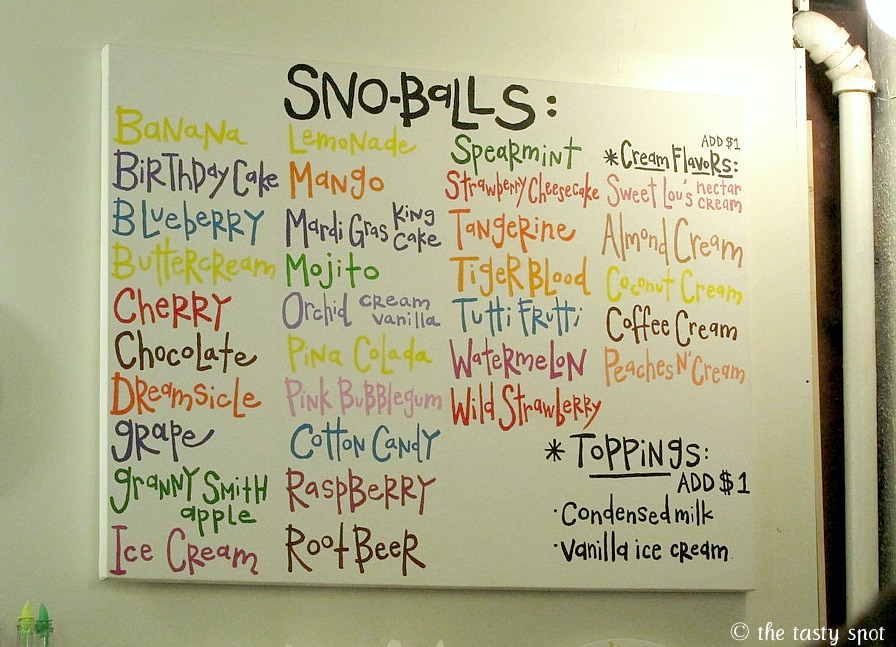 SNO-BALLS:
Banana
Birthday Cake
Blueberry
Buttercream
Cherry
Chocolate
Dreamsicle
grape
granny Smith
apple
Ice Cream
Lemonade
Mango
Mardi Gras King
Cake
Mojito
Orchid cream
vanilla
Pina Colada
Pink Bubblegum
Cotton Candy
Raspberry
Root Beer
Spearmint
Strawberry Cheesecake
Tangerine
Tiger Blood
Tutti Frutti
Watermelon
Wild Strawberry
ADD $1
*Cream Flavors:
Sweet Lou's nectar
cream
Almond Cream
Coconut Cream
Coffee Cream
Peaches N' Cream
* Toppings:
ADD $1
·Condensed milk
·Vanilla ice cream
© the tasty spot